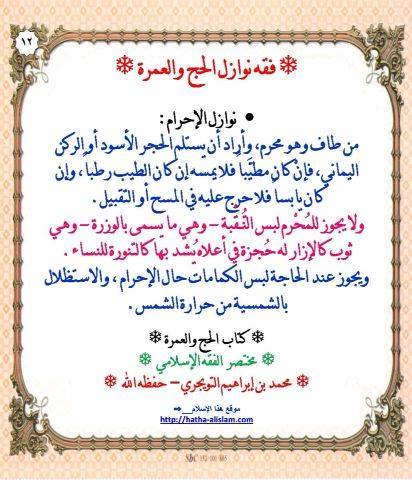 ١٢
❄ فقه نوازل الحج والعمرة ❄
• نوازل الإحرام :
من طاف وهو محرم، وأراد أن يستلم الحجر الأسود أو الركن
اليماني، فإنْ كان مطيَّباً فلا يمسه إن كان الطيب رطباً، وإن
كان يابساً فلا حرج عليه في المسح أو التقبيل .
ولا يجوز للمُحْرم لبس النُّقْبة – وهي ما يسمى بالوزرة – وهي
ثوب كالإزار له حُجزة في أعلاه يُشد بها كالتنورة للنساء .
ويجوز عند الحاجة لبس الكمامات حال الإحرام ، والاستظلال
بالشمسية من حرارة الشمس .
❄ كتاب الحج والعمرة ❄
❄ مختصر الفقه الإسلامي ❄
❄ محمد بن إبراهيم التويجري – حفظه الله ❄
موقع هذا الإسلام__➡
http://hatha-alislam.com